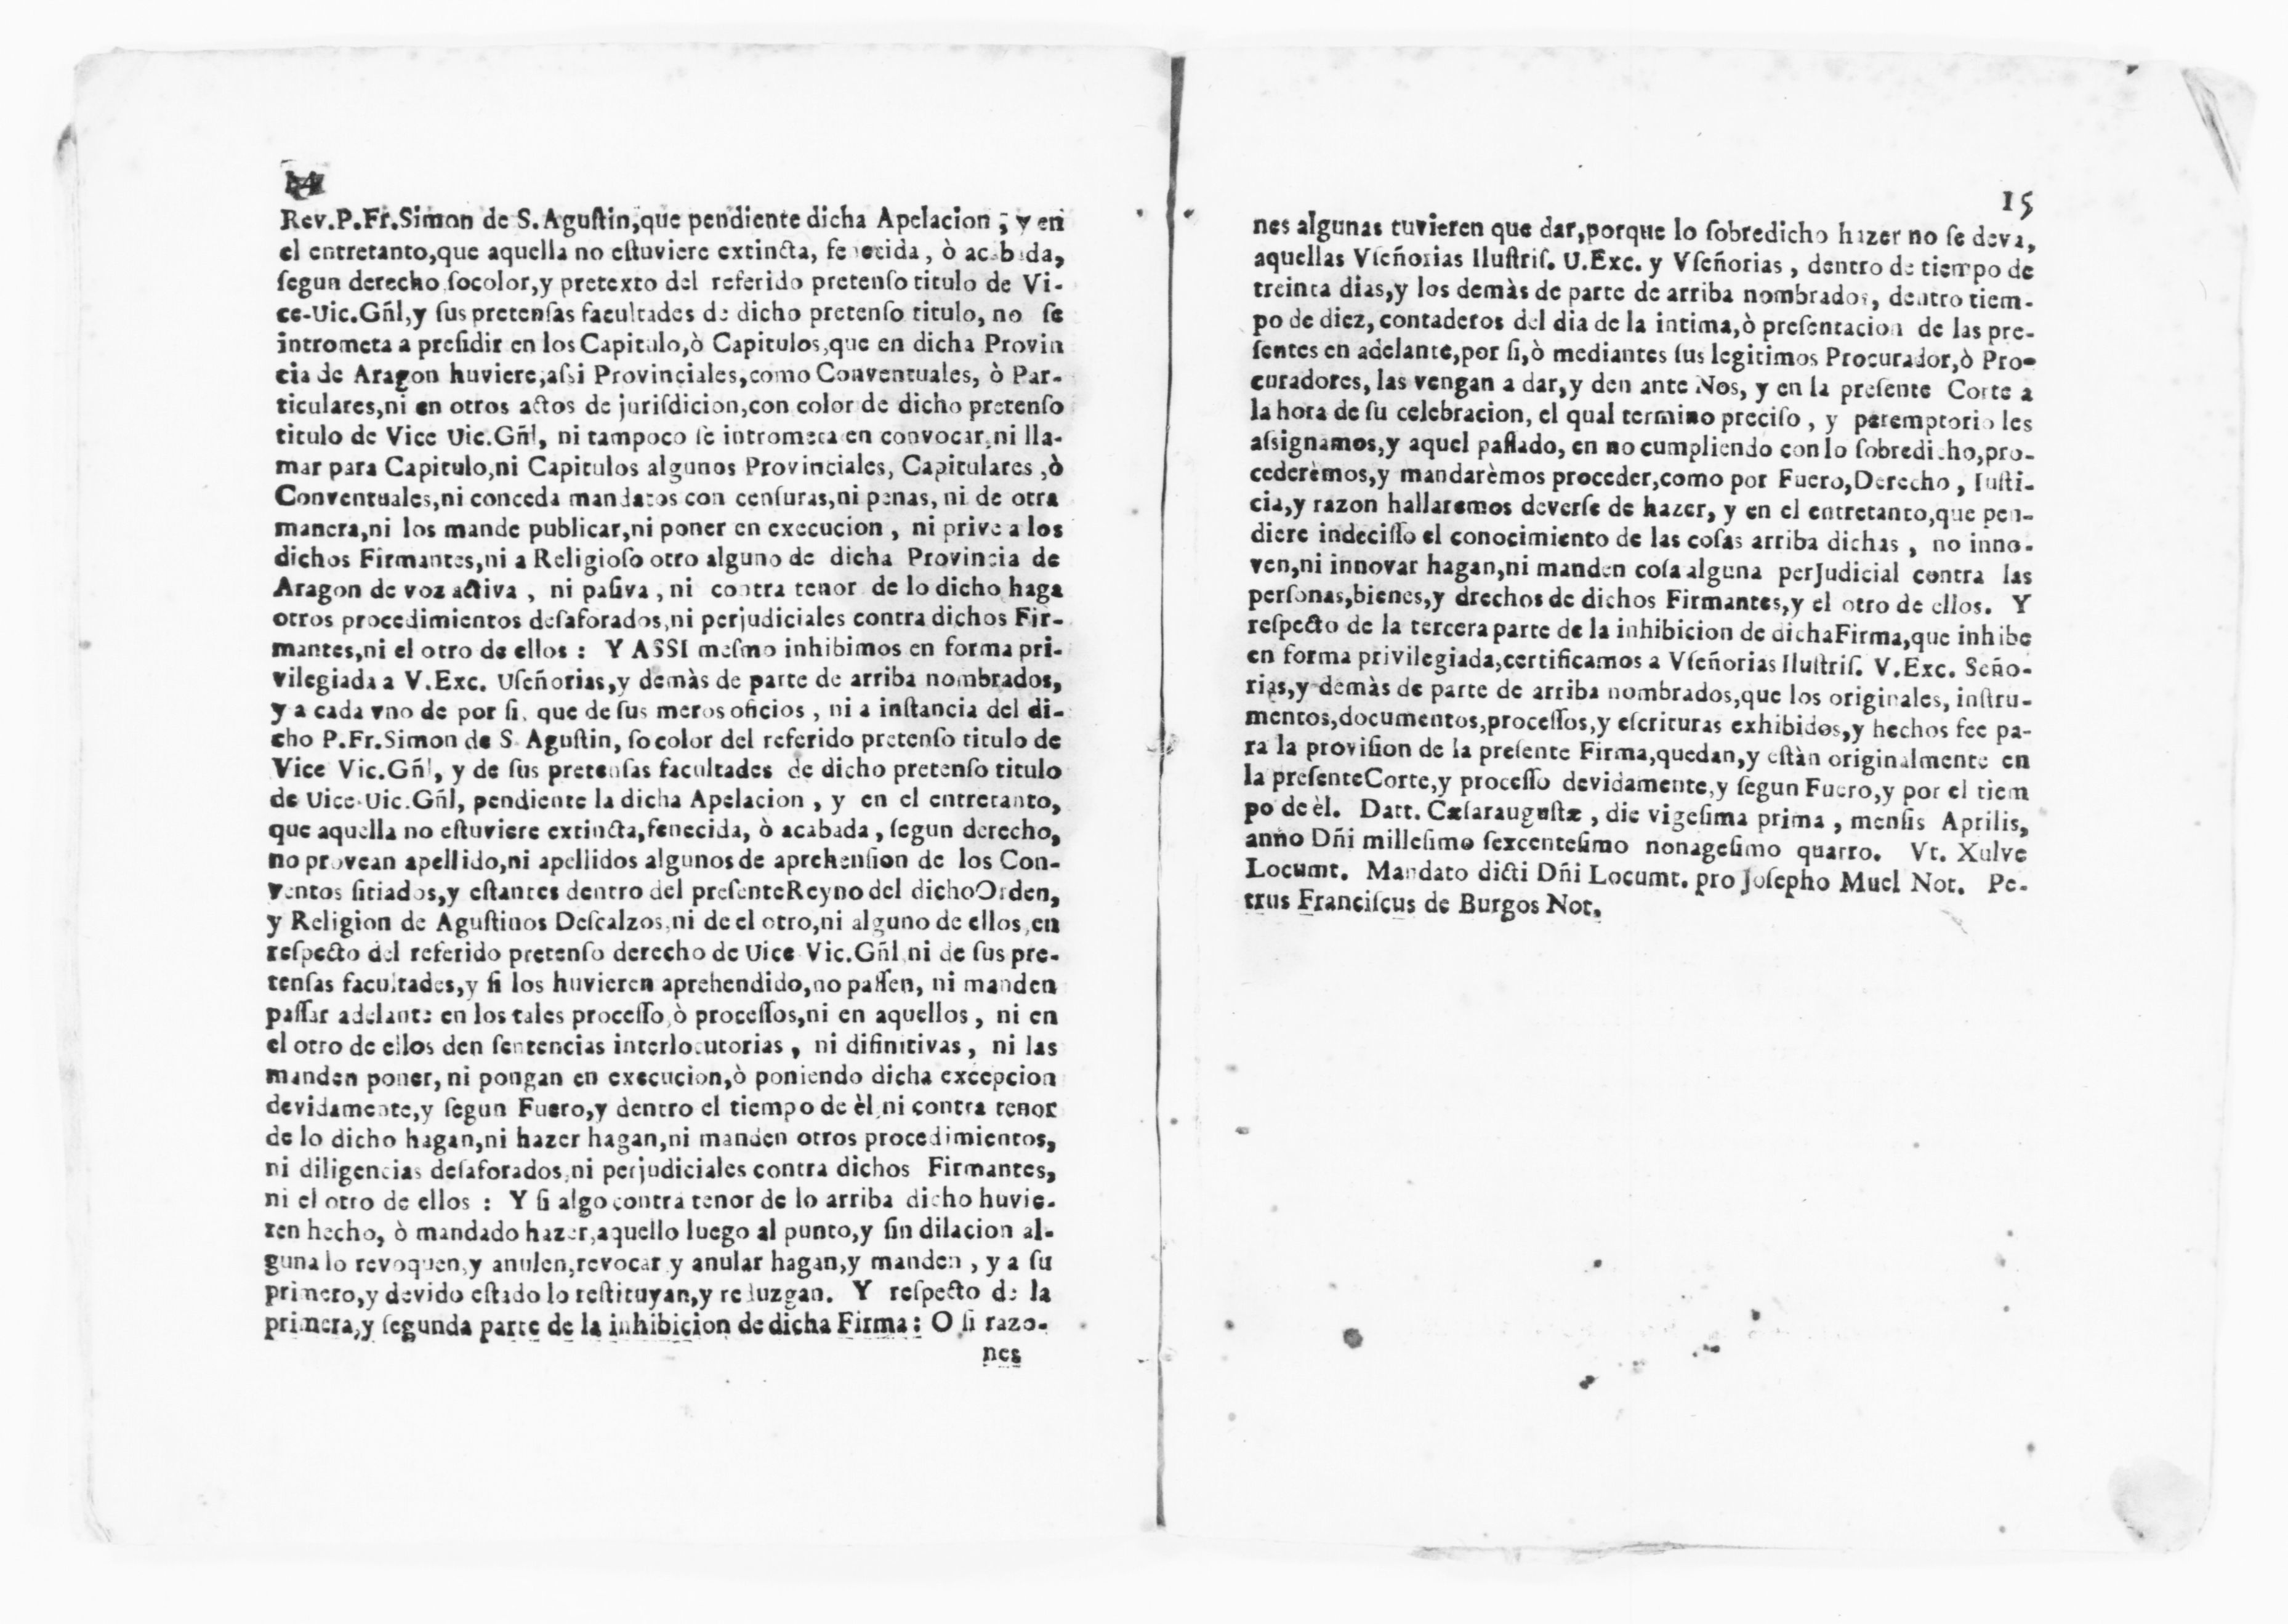 14
Rev.P.Fr.Simon de S.Aguſtin,que pendiente dicha Apelacion ; y en
el entretanto,que aquella no eſtuviere extincta, fenecida , ò acabada,
ſegun derecho ſocolor,y pretexto del referido pretenſo titulo de Vi-
ce-Uic.Gñl,y ſus pretenſas facultades de dicho pretenſo titulo, no ſe
intrometa a preſidir en los Capitulo,ò Capitulos,que en dicha Provin
cia de Aragon huviere,aſsi Provinciales,como Conventuales, ò Par-
ticulares,ni en otros actos de juriſdicion,con color de dicho pretenſo
titulo de Vice Uic.Gñl, ni tampoco ſe intrometa en convocar,ni lla-
mar para Capitulo,ni Capitulos algunos Provinciales, Capitulares ,ò
Conventuales,ni conceda mandatos con cenſuras,ni penas, ni de otra
manera,ni los mande publicar,ni poner en execucion , ni prive a los
dichos Firmantes,ni a Religioſo otro alguno de dicha Provincia de
Aragon de voz activa , ni paſiva , ni contra tenor de lo dicho haga
otros procedimientos deſaforados,ni perjudiciales contra dichos Fir-
mantes,ni el otro de ellos : Y ASSI meſmo inhibimos en forma pri-
vilegiada a V.Exc. Uſeñorias,y demàs de parte de arriba nombrados,
y a cada vno de por ſi, que de ſus meros oficios , ni a inſtancia del di-
cho P.Fr.Simon de S. Aguſtin, ſocolor del referido pretenſo titulo de
Vice Vic.Gñl, y de ſus pretenſas facultades de dicho pretenſo titulo
de Uice-Uic.Gñl, pendiente la dicha Apelacion , y en el entretanto,
que aquella no eſtuviere extincta,fenecida, ò acabada , ſegun derecho,
no provean apellido,ni apellidos algunos de aprehenſion de los Con-
ventos ſitiados,y eſtantes dentro del preſenteReyno del dichoOrden,
y Religion de Aguſtinos Deſcalzos,ni de el otro,ni alguno de ellos,en
reſpecto del referido pretenſo derecho de Uice Vic.Gñl,ni de ſus pre-
tenſas facultades,y ſi los huvieren aprehendido,no paſſen, ni manden
paſſar adelante en los tales proceſſo,ò proceſſos,ni en aquellos , ni en
el otro de ellos den ſentencias interlocutorias , ni difinitivas , ni las
manden poner, ni pongan en execucion,ò poniendo dicha excepcion
devidamente,y ſegun Fuero,y dentro el tiempo de èl,ni contra tenor
de lo dicho hagan,ni hazer hagan,ni manden otros procedimientos,
ni diligencias deſaforados,ni perjudiciales contra dichos Firmantes,
ni el otro de ellos : Y ſi algo contra tenor de lo arriba dicho huvie-
ren hecho, ò mandado hazer,aquello luego al punto,y ſin dilacion al-
guna lo revoquen,y anulen,revocar y anular hagan,y manden , y a ſu
primero,y devido eſtado lo reſtituyan,y reduzgan. Y reſpecto de la
primera,y ſegunda parte de la inhibicion de dicha Firma: O ſi razo-
nes
15
nes algunas tuvieren que dar,porque lo ſobredicho hazer no ſe deva,
aquellas Vſeñorias Iluſtriſ. U.Exc. y Vſeñorias , dentro de tiempo de
treinta dias,y los demàs de parte de arriba nombrados, dentro tiem-
po de diez, contaderos del dia de la intima,ò preſentacion de las pre-
ſentes en adelante,por ſi,ò mediantes ſus legitimos Procurador,ò Pro-
curadores, las vengan a dar,y den ante Nos, y en la preſente Corte a
la hora de ſu celebracion, el qual termino preciſo , y peremptorio les
aſsignamos,y aquel paſſado, en no cumpliendo con lo ſobredicho,pro-
cederèmos,y mandarèmos proceder,como por Fuero,Derecho , Iuſti-
cia,y razon hallaremos deverſe de hazer, y en el entretanto,que pen-
diere indeciſſo el conocimiento de las coſas arriba dichas , no inno-
ven,ni innovar hagan,ni manden coſa alguna perJudicial contra las
perſonas,bienes,y drechos de dichos Firmantes,y el otro de ellos. Y
reſpecto de la tercera parte de la inhibicion de dichaFirma,que inhibe
en forma privilegiada,certificamos a Vſeñorias Iluſtriſ. V.Exc. Seño-
rias,y demàs de parte de arriba nombrados,que los originales, inſtru-
mentos,documentos,proceſſos,y eſcrituras exhibidos,y hechos fee pa-
ra la proviſion de la preſente Firma,quedan,y eſtàn originalmente en
la preſenteCorte,y proceſſo devidamente,y ſegun Fuero,y por el tiem
po de èl. Datt. Cæſarauguſtæ , die vigeſima prima , menſis Aprilis,
anno Dñi milleſimo ſexcenteſimo nonageſimo quarto. Vt. Xulve
Locumt. Mandato dicti Dñi Locumt. pro Joſepho Muel Not. Pe-
trus Franciſcus de Burgos Not.